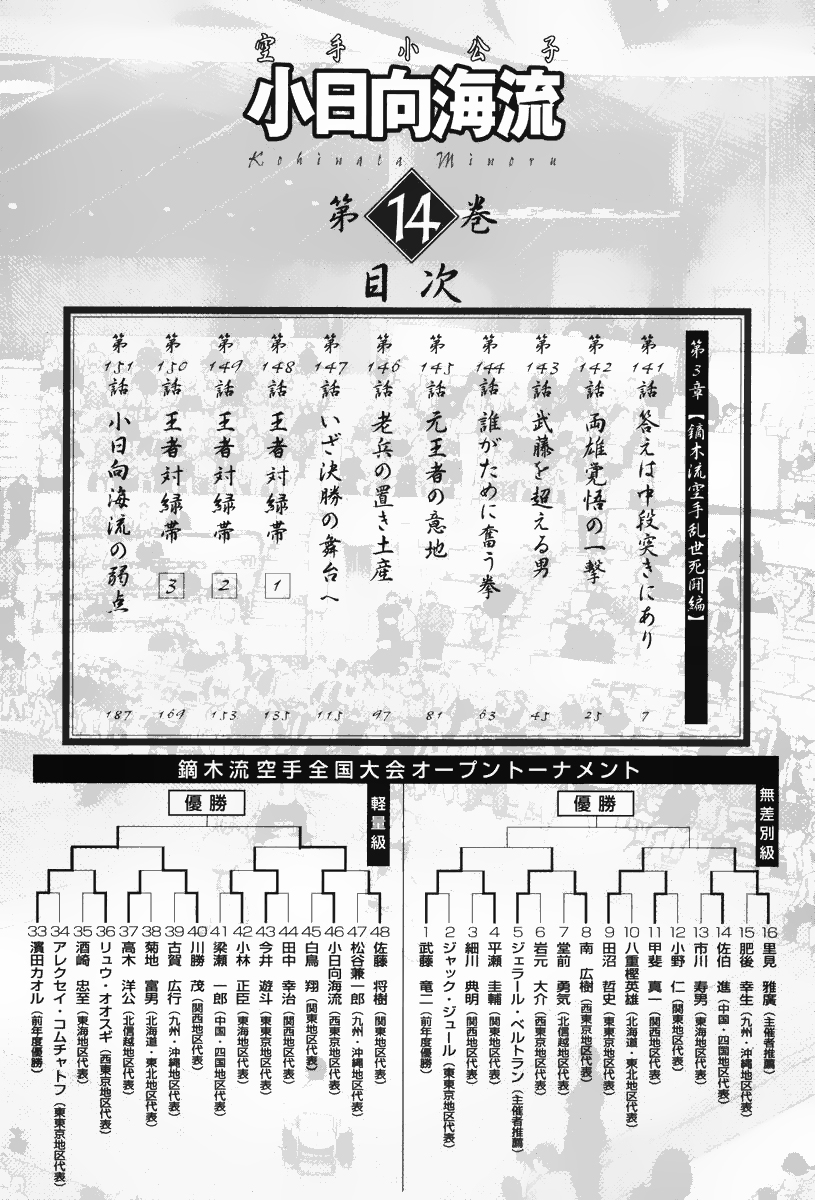 空手小公子
小日向海流
Kohinata Minoru
第14巻
目次
第3章【鏑木流空手乱世死闘編】
第141話 答えは中段突きにあり 7
第142話 両雄覚悟の一撃 25
第143話 武藤を超える男 45
第144話 誰がために奮う拳 63
第145話 元王者の意地 81
第146話 老兵の置き土産 97
第147話 いざ決勝の舞台へ 115
第148話 王者対緑帯 1 135
第149話 王者対緑帯 2 153
第150話 王者対緑帯 3 169
第151話 小日向海流の弱点 187
鏑木流空手全国大会オープントーナメント
無差別級
優勝
16 里見 雅廣(主催者推薦)
15 肥後 幸生(九州・沖縄地区代表)
14 佐伯 進(中国・四国地区代表)
13 市川 寿男(東海地区代表)
12 小野 仁(関東地区代表)
11 甲斐 真一(関西地区代表)
10 八重樫英雄(北海道・東北地区代表)
9 田沼 哲史(東東京地区代表)
8 南 広樹(西東京地区代表)
7 堂前 勇気(北信越地区代表)
6 岩元 大介(西東京地区代表)
5 ジェラール・ベルトラン(主催者推薦)
4 平瀬 圭輔(関東地区代表)
3 細川 典明(関西地区代表)
2 ジャック・ジュール(東東京地区代表)
1 武藤 竜二(前年度優勝)
軽量級
優勝
48 佐藤 将樹(関東地区代表)
47 松谷兼一郎(九州・沖縄地区代表)
46 小日向海流(西東京地区代表)
45 白鳥 翔(関東地区代表)
44 田中 幸治(関西地区代表)
43 今井 遊斗(東東京地区代表)
42 小林 正臣(東海地区代表)
41 梁瀬 一郎(中国・四国地区代表)
40 川勝 茂(関西地区代表)
39 古賀 広行(九州・沖縄地区代表)
38 菊地 富男(北海道・東北地区代表)
37 高木 洋公(北信越地区代表)
36 リュウ・オオスギ(西東京地区代表)
35 酒崎 忠至(東海地区代表)
34 アレクセイ・コムチャトフ(東東京地区代表)
33 濱田カオル(前年度優勝)